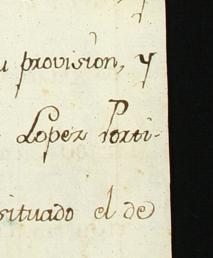 provision, y
Lopez Porti-
situado el de